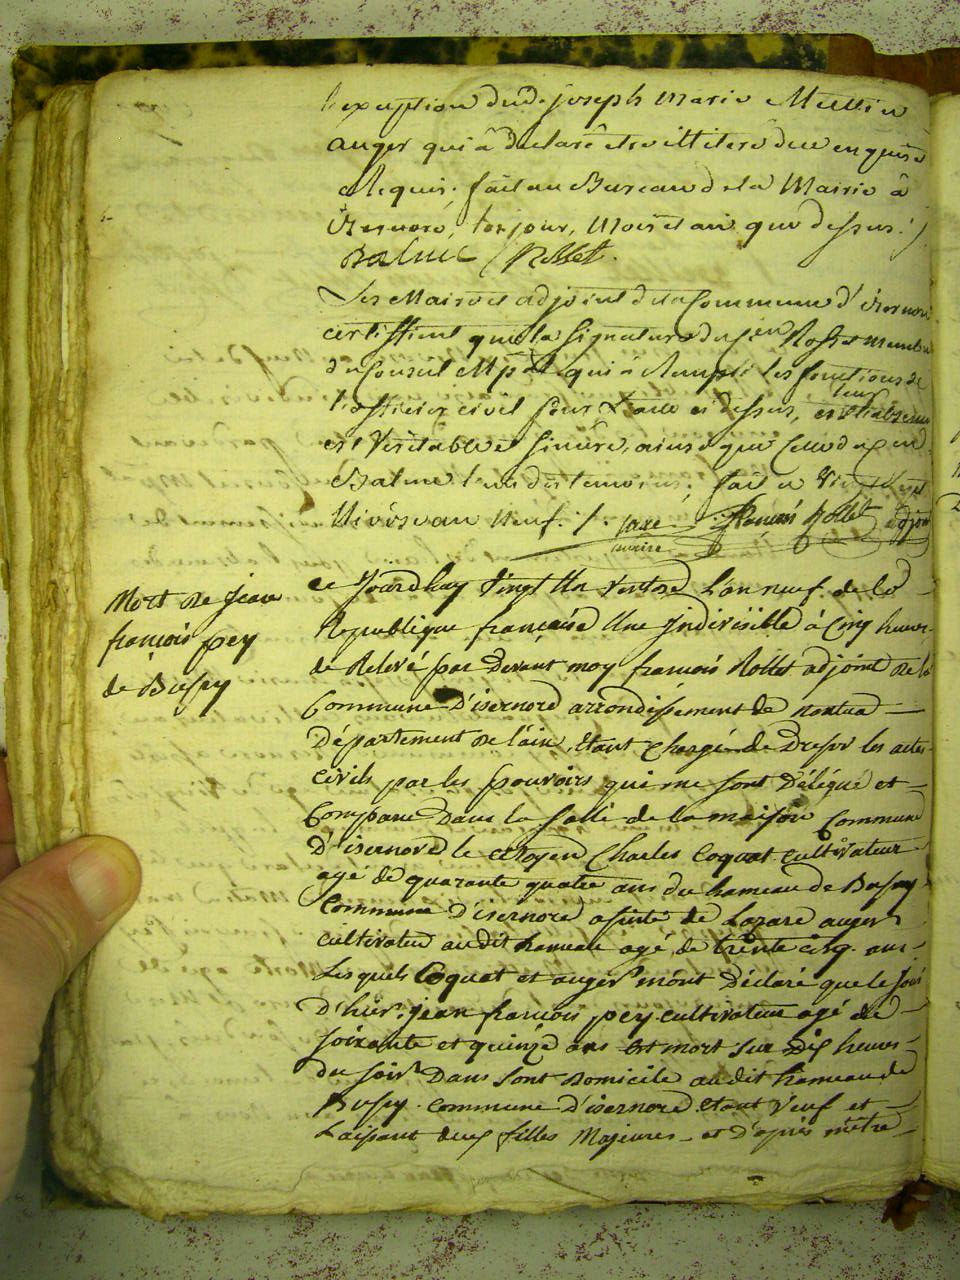 l'exception dud. joseph Marie
auger qui â declaré etre illiteré de ce enquis
et requis. fait au Bureau de la Mairie â
izernore, les jour, Mois et an que dessus.
Balme Rollet
Les Maire et adjoint de la Commune d'izernore
certiffient que la signature du Cen Rollet membre
du Conseil Mpal qui â Rempli les fonctions de
l'officier civil pour l'acte ci dessus, en leur absence
est Veritable et sincére, ainsi que celle du Cen
Balme l'un des temoins. fait le Vingt Sept
Nivôse an Neuf. /. françois Rollet adjoint
maire
Mort de jean
françois pey
de Bussy
ce jourdhuy Vingt Un Ventose L'an neuf de la
Republique française Une jndivisible à Cinq heures
de Relevé par Devant moy françois Rollet adjoint de la
Commune D'isernore arrondissement de nantua
Département de l'ain, Etant chargé de Dresser les actes
civils par les pouvoirs qui me sont Délégué et
Comparu Dans la salle de la maison Commune
D'isernore le citoyen Charles Coquat cultivateur
agé de quarante quatre ans du hameau de Bussy
Commune D'isernore assisté de Lazare auger
cultivateur audit hameau agé de trente cinq ans
Lesquels Coquat et auger m'ont Déclaré que le jour
D'hier jean françois pey cultivateur agé de
soixante et quinze ans est mort sur Dix heures
du soir Dans sont Domicile audit hameau de
Bussy commune D'isernore Etant Veuf et
Laissant deux filles Majeures et D'après m'etre